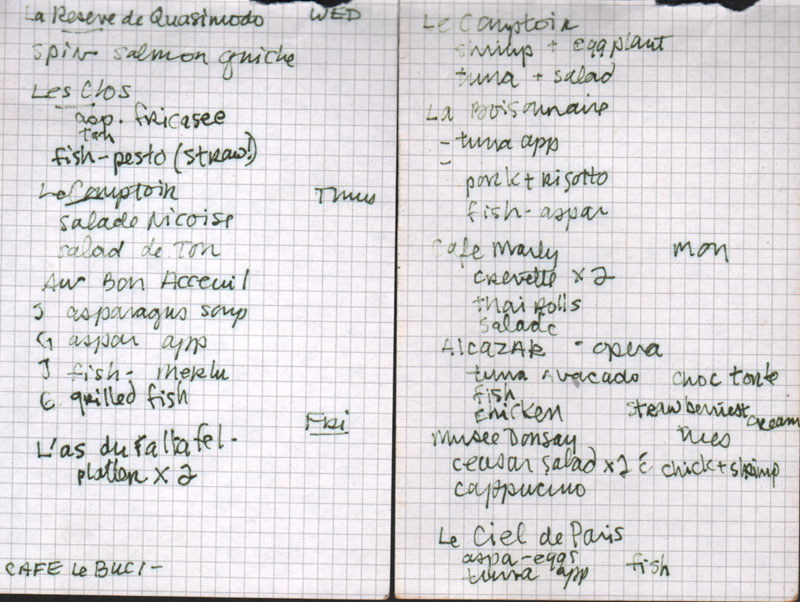 La Reserve de Quasimodo WED
spin salmon quiche
Les Clos
asp. fricasee
fish-pesto (straw!)
Le Comptoir Thurs
salade Nicoise
salad de Ton
Au Bon Acceuil
J asparagus soup
G aspar app
J fish- merlu
G grilled fish
Fri
L'as du Fallafel-
platter x 2
CAFE Le BUCI -
Le Comptoir
shrimp + eggplant
tuna + salad
La Boisonnaire
- tuna app
-
pork + risotto
fish - aspar
Cafe Marly mon
crevette x 2
thai rolls
salade
Alcazar - opera
tuna avacado choc torte
fish
chicken strawberries + cream
Musee Dorsay Tues
ceasar salad x 2 c chick + shrimp
cappucino
Le Ciel de Paris
aspa-eggs
tuna app fish